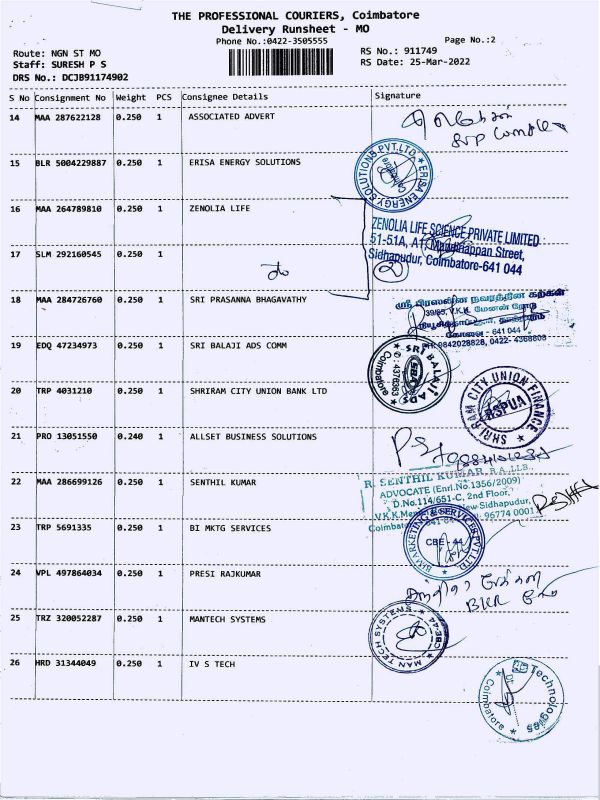 THE PROFESSIONAL COURIERS, Coimbatore
Delivery Runsheet - MO
Phone No.:0422-3505555
Page No.:2
Route: NGN ST MO
RS No.: 911749
Staff: SURESH P S
RS Date: 25-Mar-2022
DRS No.: DCJB91174902
S No Consignment No Weight PCS Consignee Details Signature
14 MAA 287622128 0.250 1 ASSOCIATED ADVERT
15 BLR 5004229887 0.250 1 ERISA ENERGY SOLUTIONS
ERISA ENERGY SOLUTIONS PVT.LTD.
16 MAA 264789810 0.250 1 ZENOLIA LIFE
ZENOLIA LIFE SCIENCE PRIVATE LIMITED
51-51A, A1, Marudhappan Street,
Sidhapudur, Coimbatore-641 044
17 SLM 292160545 0.250 1
2
18 MAA 284726760 0.250 1 SRI PRASANNA BHAGAVATHY
ஸ்ரீ பிரஸன்ன நவரத்தின கற்கள்
39/65, V.K.K. மேனன் ரோடு
கோவை - 641 044
PH: 9842028828, 0422- 4368808
19 EDQ 47234973 0.250 1 SRI BALAJI ADS COMM
SRI BALAJI ADS
Coimbatore
✆: 4376363
SBA
20 TRP 4031210 0.250 1 SHRIRAM CITY UNION BANK LTD
SHRIRAM CITY UNION FINANCE
RSPUA
21 PRO 13051550 0.240 1 ALLSET BUSINESS SOLUTIONS
22 MAA 286699126 0.250 1 SENTHIL KUMAR
R. SENTHIL KUMAR, B.A.,LLB.,
ADVOCATE (Enrl.No.1356/2009)
D.No.114/651-C, 2nd Floor,
Sidhapudur,
23 TRP 5691335 0.250 1 BI MKTG SERVICES
BI MARKETING & SERVICES PVT LTD
CBE - 44
24 VPL 497864034 0.250 1 PRESI RAJKUMAR
25 TRZ 320052287 0.250 1 MANTECH SYSTEMS
MAN TECH SYSTEMS
CBE-44
26 HRD 31344049 0.250 1 IV S TECH
Technologies
Coimbatore